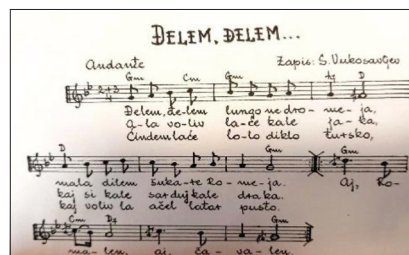 ĐELEM, ĐELEM...
Andante
Zapis: S. Vukosavljev
Gm Cm Gm A7 D
2+3
4
Đelem, đe-lem lungo ne dro-me-ja,
A-la vo-liv la-če kale ja-ka,
Čindem laće lo-lo diklo tursko,
D Gm Gm
mala dilem šuka-re Ro-me-ja. Aj, Ro-
kaj si kale sar duj kale draka.
kaj voliv la ačel latar pusto.
Cm D7 Gm
ma-len, aj, ča-va-len